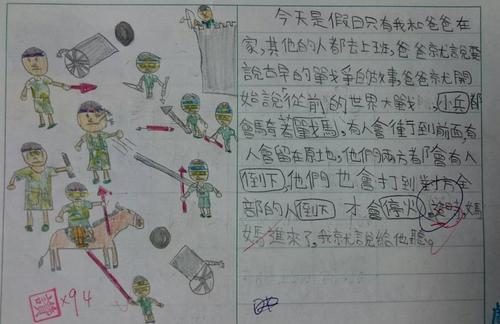 今天是假日只有我和爸爸在
家,其他的人都去上班,爸爸就說要
說古早的戰爭的故事,爸爸就開
始說從前的世界大戰,小兵都
會騎著戰馬,有人會衝到前面,有
人會留在原地,他們兩方都會有人
倒下,他們也會打到對方全
部的人倒下才會停火,這時,媽
媽進來了,我就說給他聽。
x94